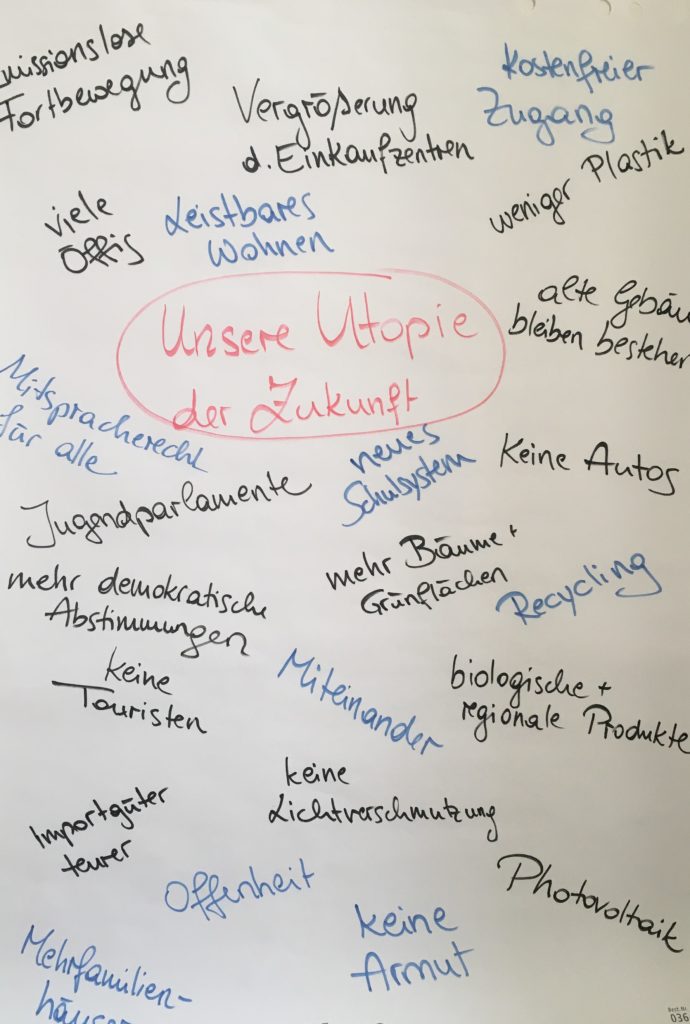 emissionslose
Fortbewegung
Vergrößerung
d. Einkaufzentren
Kostenfreier
Zugang
weniger Plastik
viele
Öffis
Leistbares
Wohnen
alte Gebäu
bleiben bestehen
Unsere Utopie
der Zukunft
Mitspracherecht
für alle
neues
Schulsystem
Keine Autos
Jugendparlamente
mehr Bäume +
Grünflächen
Recycling
mehr demokratische
Abstimmungen
keine
Touristen
Miteinander
biologische +
regionale Produkte
keine
Lichtverschmutzung
Importgüter
teurer
Offenheit
Photovoltaik
keine
Armut
Mehrfamilien-
häuser
Best.Nr.
036